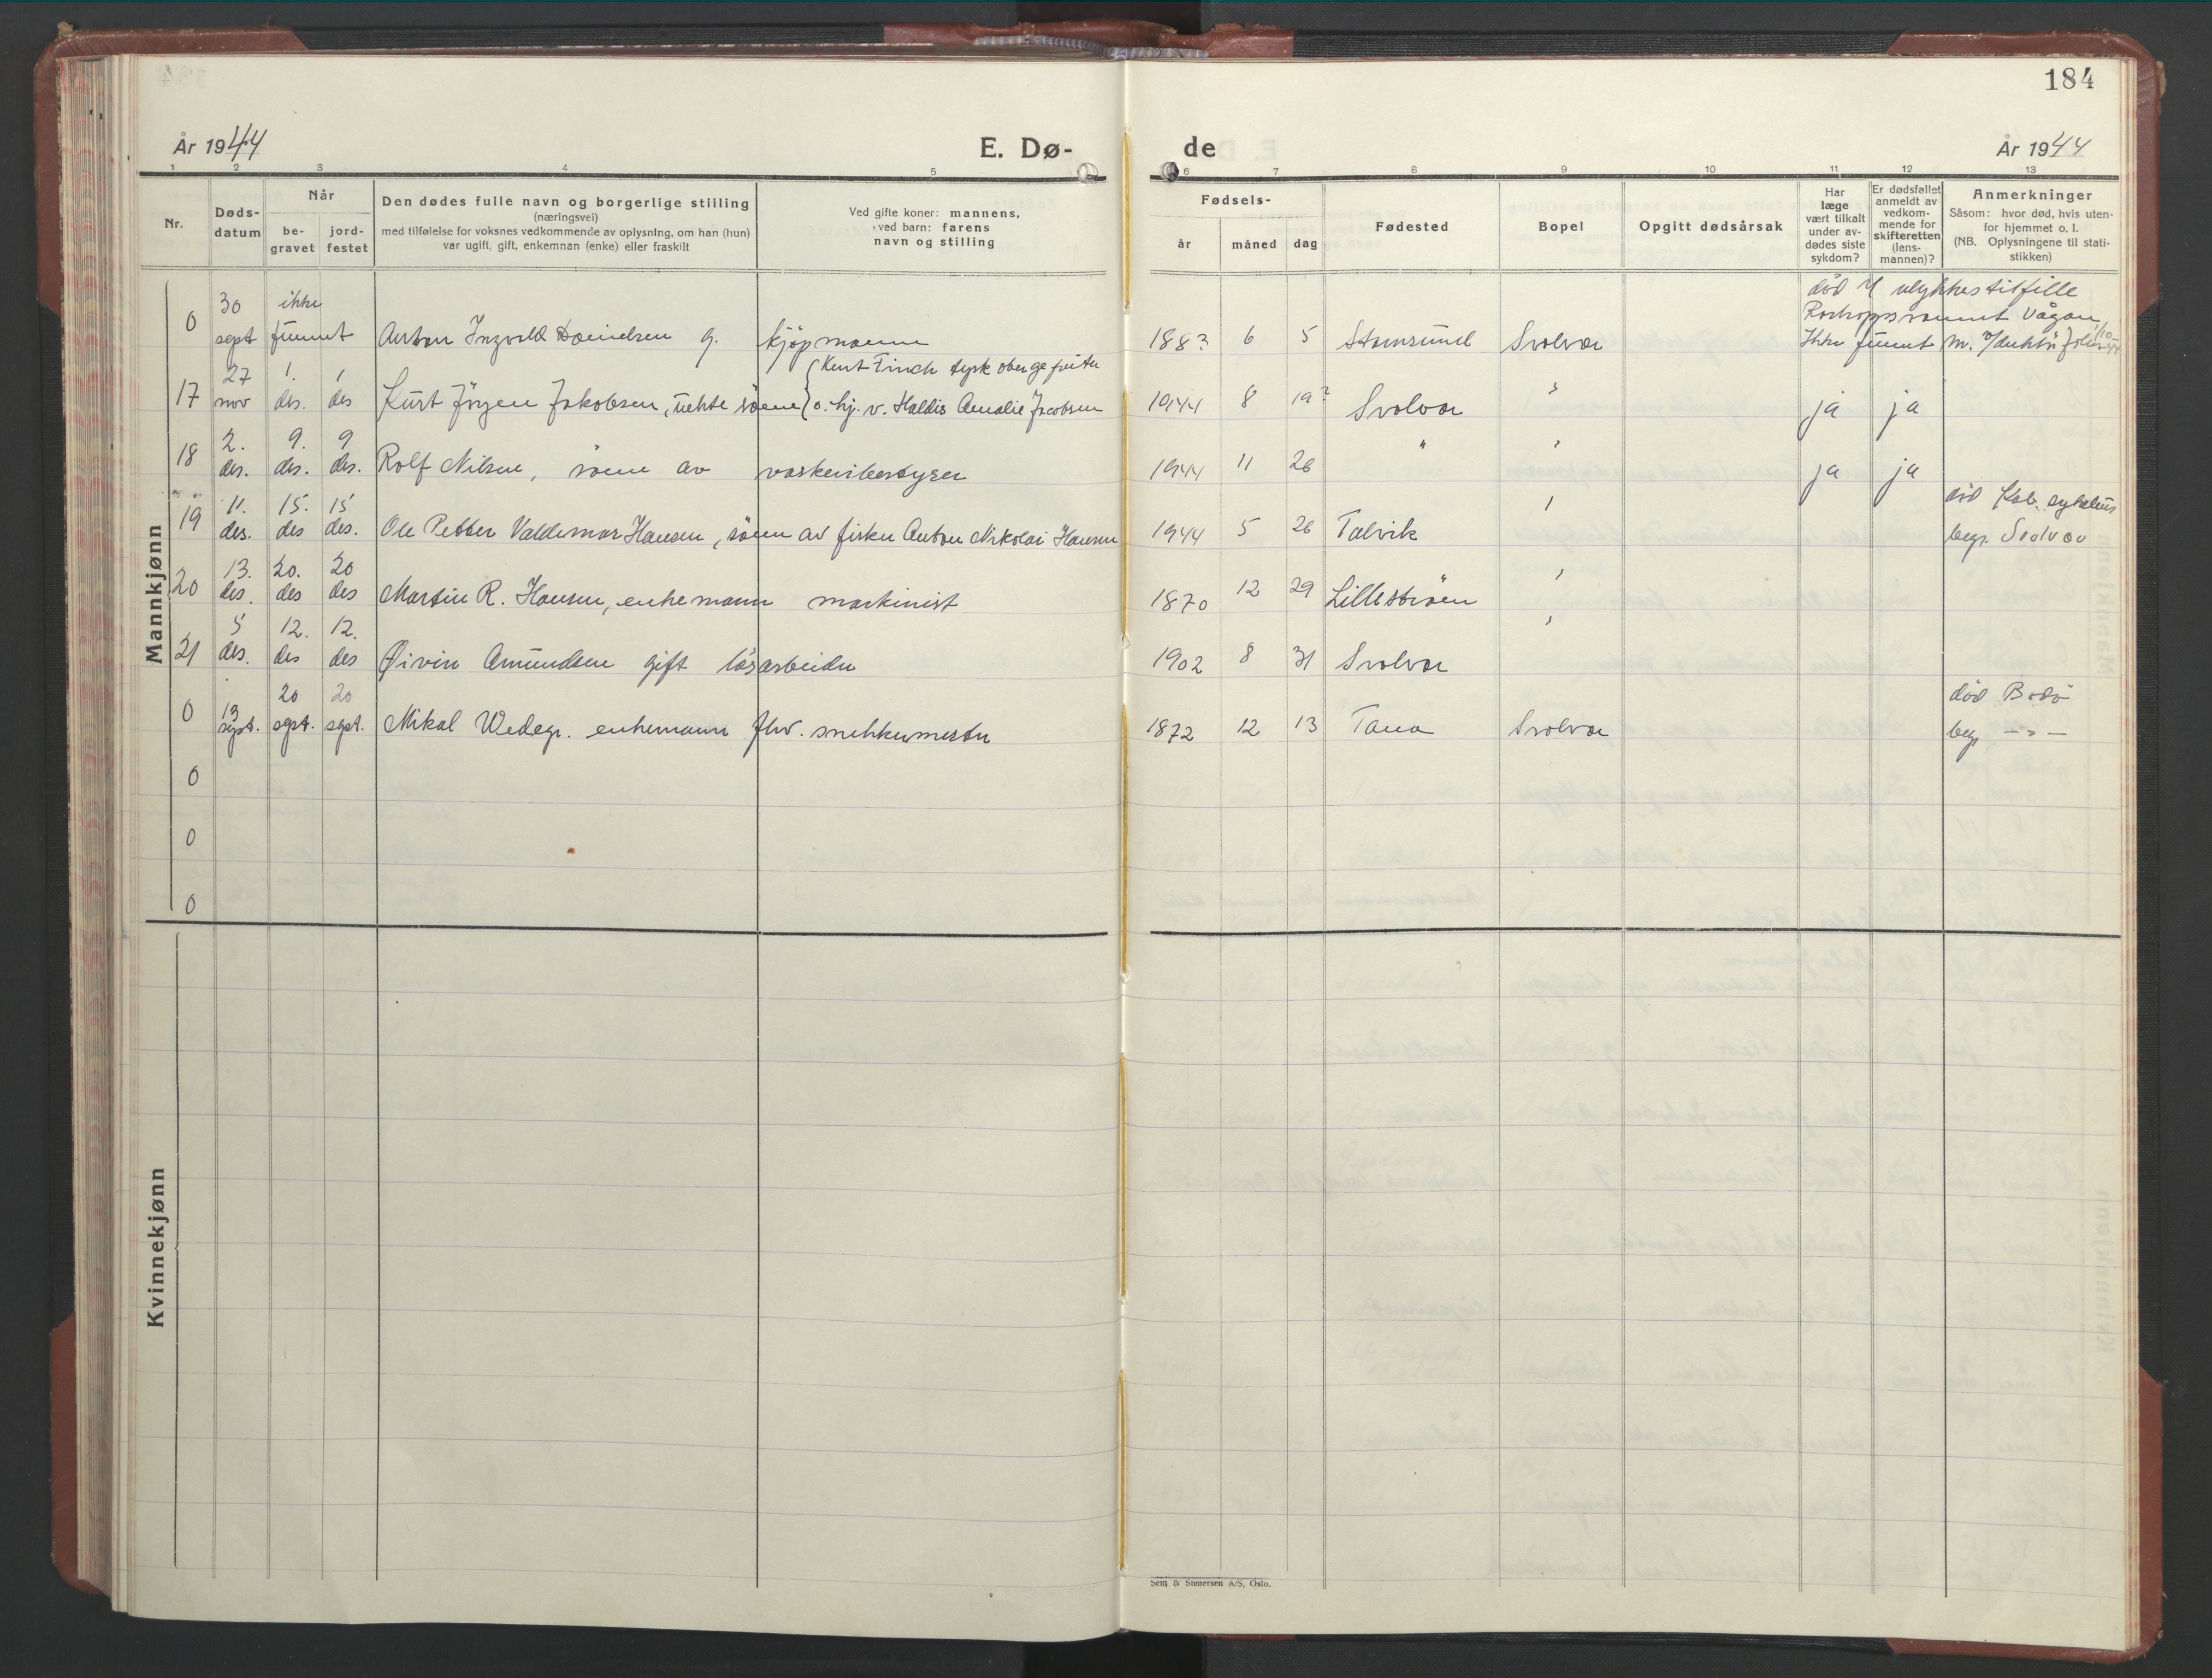 184
År 1944
E. Dø-
de
År 1944
1 2 3 4 5 6 7 8 9 10 11 12 13
Nr.
Døds-
datum
Når
be-
gravet
jord-
festet
Den dødes fulle navn og borgerlige stilling
(næringsvei)
med tilføielse for voksnes vedkommende av oplysning, om han (hun)
var ugift, gift, enkemnan (enke) eller fraskilt
Ved gifte koner: mannens,
ved barn: farens
navn og stilling
Fødsels-
år måned dag
Fødested
Bopel
Opgitt dødsårsak
Har
læge
vært tilkalt
under av-
dødes siste
sykdom?
Er dødsfallet
anmeldt av
vedkom-
mende for
skifteretten
(lens-
mannen)?
Anmerkninger
Såsom: hvor død, hvis uten-
for hjemmet o. l.
(NB. Oplysningene til stati-
stikken)
Mannkjønn
30 ikke død ulykkestilfille
Vågan
0 sept funnet Anton Ingvald Danielsen g. kjöpmann 1883 6 5 Stamsund Svolvær Ikke funnet
27 1. 1 tysk obergefreiter
17 nov des. des Kurt Jörgen Jakobsen, uekte sönn o. hj. v. Haldis Amalie Jacobsen 1944 8 19? Svolvær " ja ja
2. 9. 9
18 des. des. des. Rolf Nilsen, sönn av vaskeribestyrer 1944 11 26 " " ja ja
11. 15. 15 død Kab. sykehus
19 des. des des. Ole Petter Valdemar Hansen, sönn av fisker Anton Nikolai Hansen 1944 5 26 Talvik " begr. Svolvær
13. 20. 20
20 des. des des Martin R. Hansen, enkemann maskinist 1870 12 29 Lilleström "
5 12. 12.
21 des. des des Øivin Amundsen gift lösarbeider 1902 8 31 Svolvær "
20 20 död Bodö
0 13 sept. sept. sept. Mikal Wedege. enkemann fhv. snekkermester 1872 12 13 Tana Svolvær begr. — " —
0
0
0
Kvinnekjønn
Sem & Stenersen A/S, Oslo.